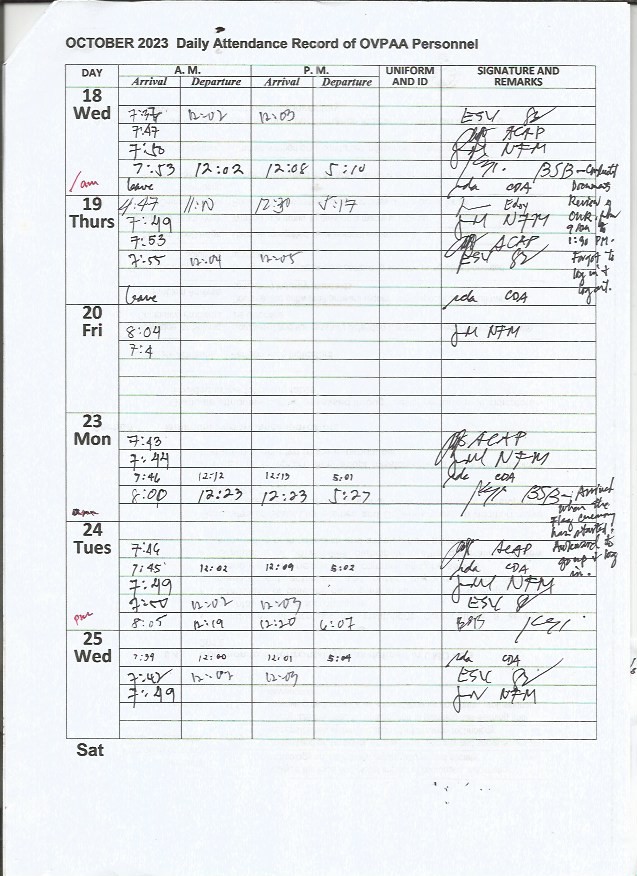 OCTOBER 2023 Daily Attendance Record of OVPAA Personnel
DAY A. M. P. M. UNIFORM AND ID SIGNATURE AND REMARKS
Arrival Departure Arrival Departure
18 Wed
7:38 12:02 12:03 ESV
7:47 ACAP
7:50 JM NFM
7:53 12:02 12:08 5:10 BSB - Conducted
1 am leave CDA
Review of
9 am to
1:30 PM.
Forgot to
log in &
log out.
19 Thurs
4:47 12:30 5:17 Edsy
7:49 JM NFM
7:53 ACAP
7:55 12:04 12:05 ESV
leave CDA
20 Fri
8:04 JM NFM
7:4
23 Mon
7:43 ACAP
7:44 JM NFM
7:46 12:12 12:13 5:01 CDA
8:00 12:23 12:23 5:27 BSB - Arrived
when the
flag ceremony
has started.
Awkward to
go & log
in.
24 Tues
7:46 ACAP
7:45 12:02 12:09 5:02 CDA
7:49 JM NFM
7:50 12:02 12:03 ESV
pm 8:05 12:19 12:20 6:07 BSB
25 Wed
7:39 12:00 12:01 5:04 CDA
7:42 12:02 12:03 ESV
7:49 NFM
Sat